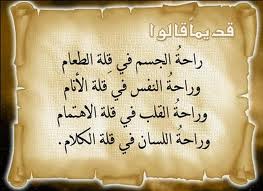 قديما قالوا
راحةُ الجسم في قِلة الطعام
وراحةُ النفس في قلة الأنام
وراحةُ القلب في قلة الاهتمام
وراحةُ اللسان في قلة الكلام.